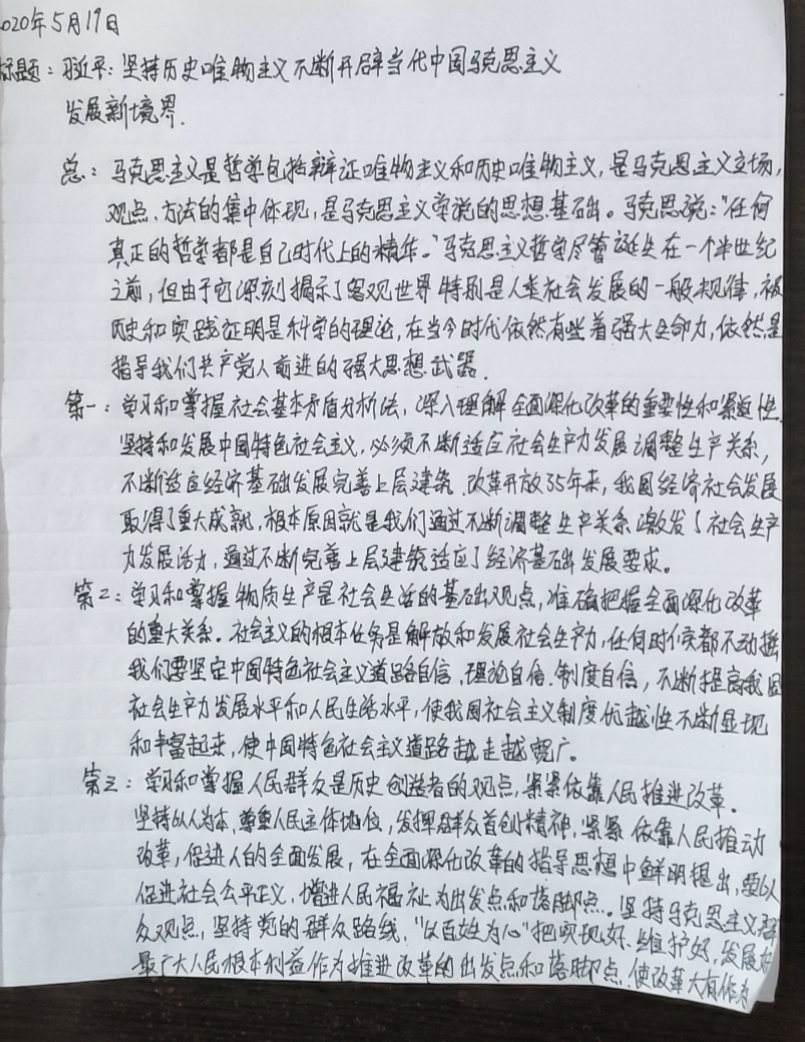 020年5月19日
标题：习近平：坚持历史唯物主义不断开辟当代中国马克思主义
发展新境界.
总：马克思主义是哲学包括辩证唯物主义和历史唯物主义，是马克思主义立场，
观点、方法的集中体现，是马克思主义学说的思想基础。马克思说："任何
真正的哲学都是自己时代上的精华。"马克思主义哲学尽管诞生在一个半世纪
之前，但由于它深刻揭示了客观世界特别是人类社会发展的一般规律，被
历史和实践证明是科学的理论，在当今时代依然有些着强大生命力，依然是
指导我们共产党人前进的强大思想武器.
第一：学习和掌握社会基本矛盾分析法，深入理解全面深化改革的重要性和紧迫性.
坚持和发展中国特色社会主义，必须不断适应社会生产力发展调整生产关系，
不断适应经济基础发展完善上层建筑.改革开放35年来，我国经济社会发展
取得了重大成就，根本原因就是我们通过不断调整生产关系激发了社会生产
力发展活力，通过不断完善上层建筑适应了经济基础发展要求。
第2：学习和掌握物质生产是社会生活的基础观点，准确把握全面深化改革
的重大关系.社会主义的根本任务是解放和发展社会生产力，任何时候都不动摇
我们要坚定中国特色社会主义道路自信，理论自信.制度自信，不断提高我国
社会生产力发展水平和人民生活水平，使我国社会主义制度优越性不断显现
和丰富起来，使中国特色社会主义道路越走越宽广。
第三：学习和掌握人民群众是历史创造者的观点，紧紧依靠人民推进改革.
坚持以人为本，尊重人民主体地位，发挥群众首创精神，紧紧依靠人民推动
改革，促进人的全面发展，在全面深化改革的指导思想中鲜明提出，要以
促进社会公平正义，增进人民福祉为出发点和落脚点。坚持马克思主义群
众观点，坚持党的群众路线，"以百姓为心"把实现好.维护好，发展好
最广大人民根本利益作为推进改革的出发点和落脚点.使改革大有作为